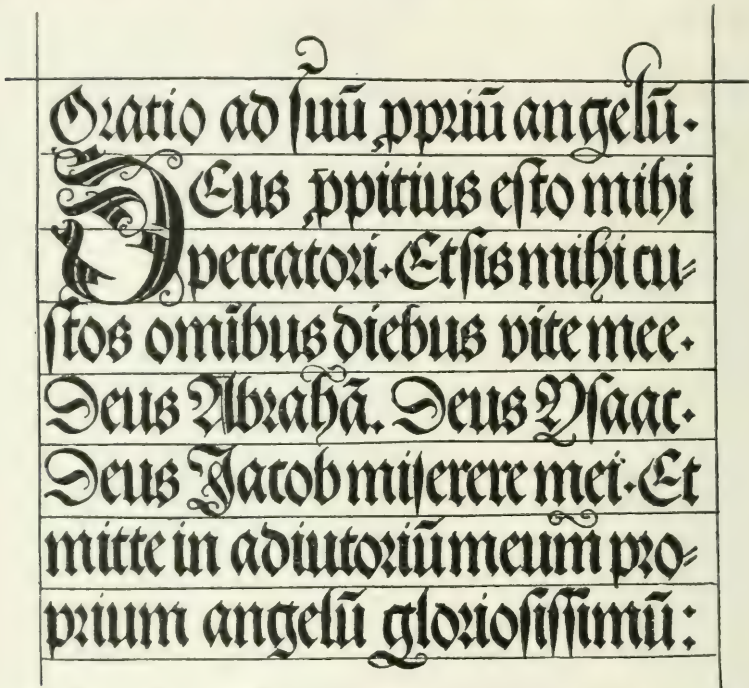 Oratio ad ſuū ꝓpriū angelū.
DEus ꝓpitius eſto mihi
peccatori. Et ſis mihi cu⸗
ſtos omībus diebus vite mee.
Deus Abrahā. Deus Yſaac.
Deus Jacob miſerere mei. Et
mitte in adiutoriū meum pro⸗
prium angelū glorioſiſſimū: